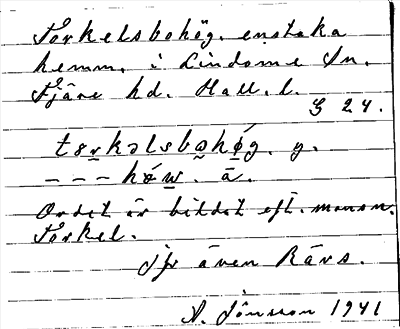 Torkelsbohög. enstaka
hemm. i Lindome sn.
Fjäre hd. Hall. l.
G 24.
tɜrkəlsbəhǿg. y.
--- hǿw. ä.
Ordet är bildat eft. mansn.
Torkel.
Jfr även Rävs.
A. Jönsson 1941